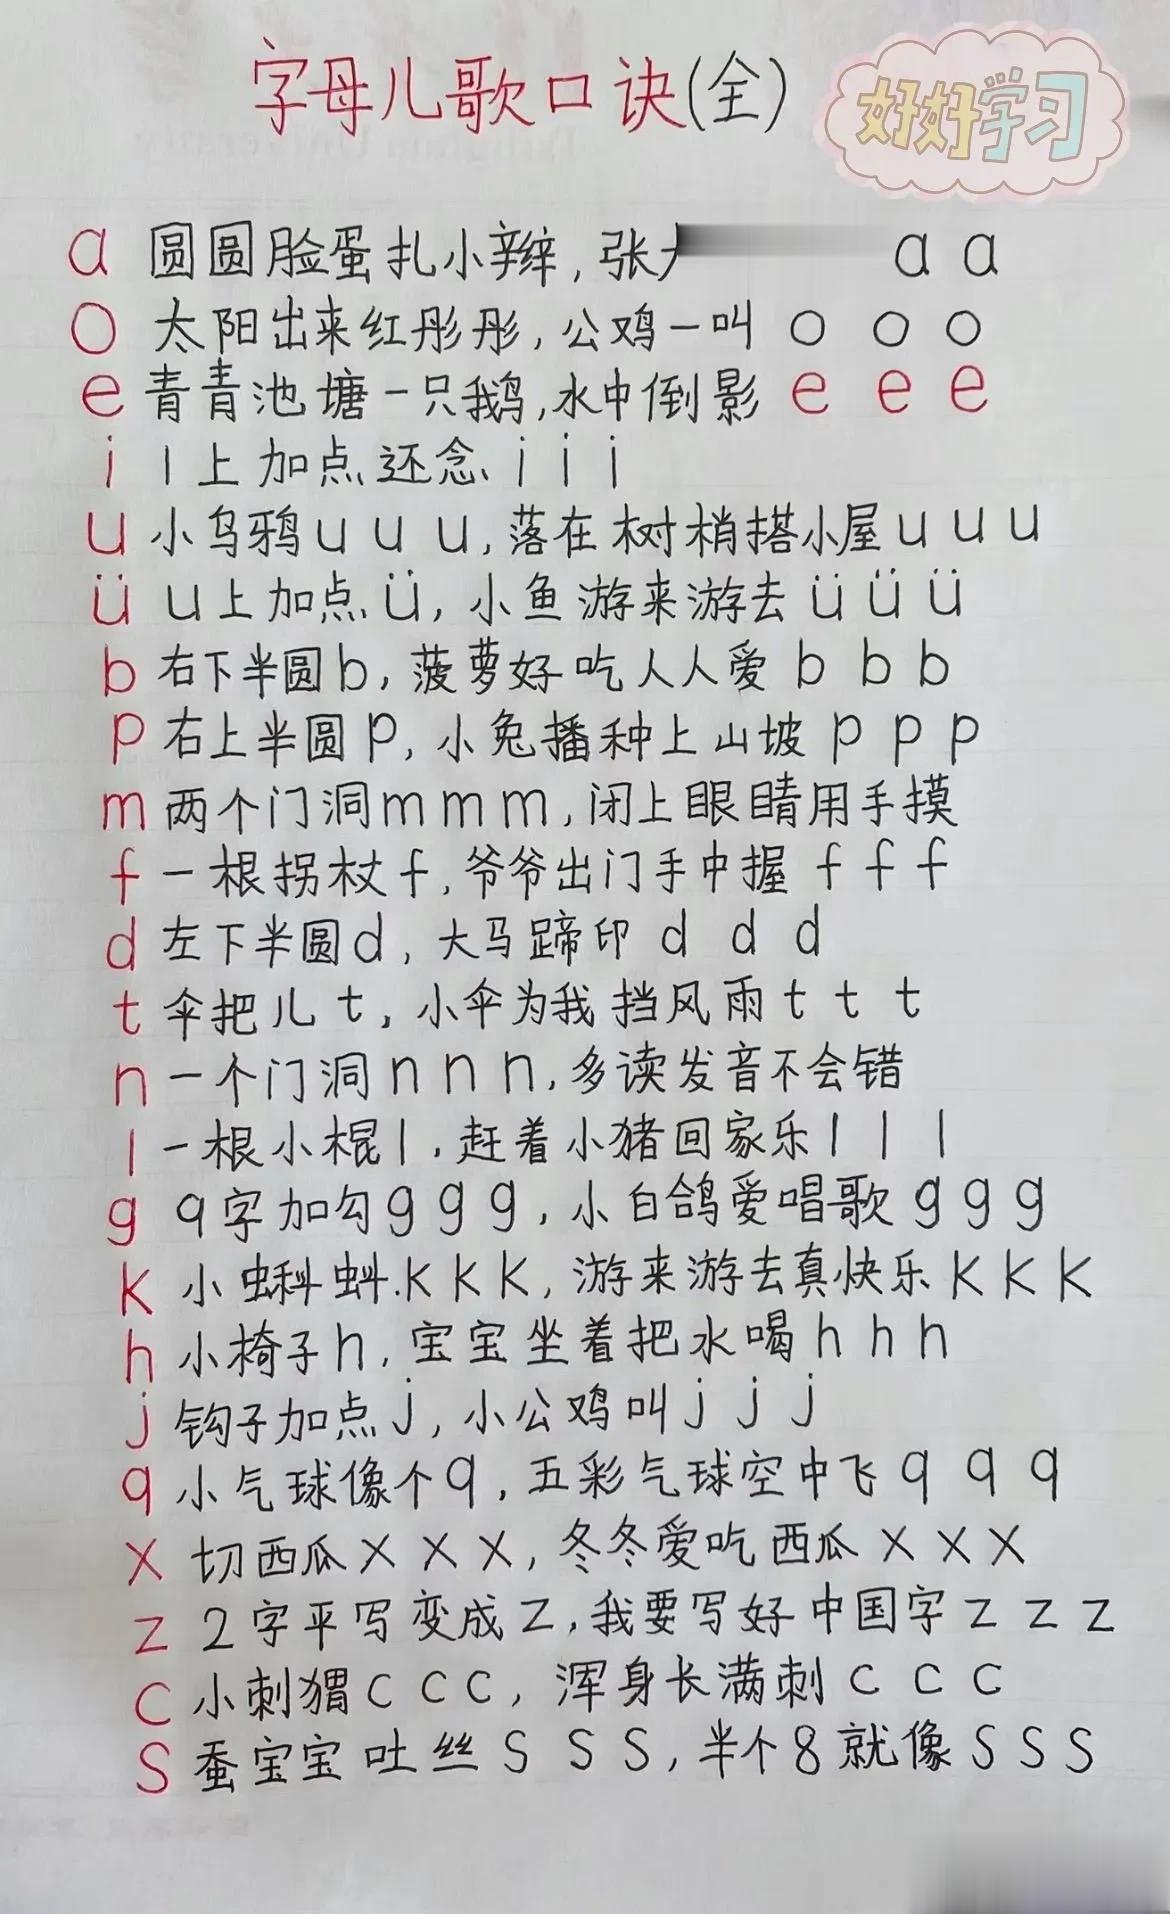 字母儿歌口诀(全)
好好学习
a 圆圆脸蛋扎小辫,张 a a
o 太阳出来红彤彤,公鸡一叫 o o o
e 青青池塘一只鹅,水中倒影 e e e
i 1上加点还念 i i i
u 小乌鸦 u u u,落在树梢搭小屋 u u u
ü u上加点 ü,小鱼游来游去 ü ü ü
b 右下半圆 b,菠萝好吃人人爱 b b b
p 右上半圆 p,小兔播种上山坡 p p p
m 两个门洞 m m m,闭上眼睛用手摸
f 一根拐杖 f,爷爷出门手中握 f f f
d 左下半圆 d,大马蹄印 d d d
t 伞把儿 t,小伞为我挡风雨 t t t
n 一个门洞 n n n,多读发音不会错
l 一根小棍 l,赶着小猪回家乐 l l l
g 9字加勾 g g g,小白鸽爱唱歌 g g g
k 小蝌蚪 k k k,游来游去真快乐 k k k
h 小椅子 h,宝宝坐着把水喝 h h h
j 钩子加点 j,小公鸡叫 j j j
q 小气球像个 q,五彩气球空中飞 q q q
x 切西瓜 x x x,冬冬爱吃西瓜 x x x
z 2字平写变成 z,我要写好中国字 z z z
c 小刺猬 c c c,浑身长满刺 c c c
s 蚕宝宝吐丝 s s s,半个8就像 s s s